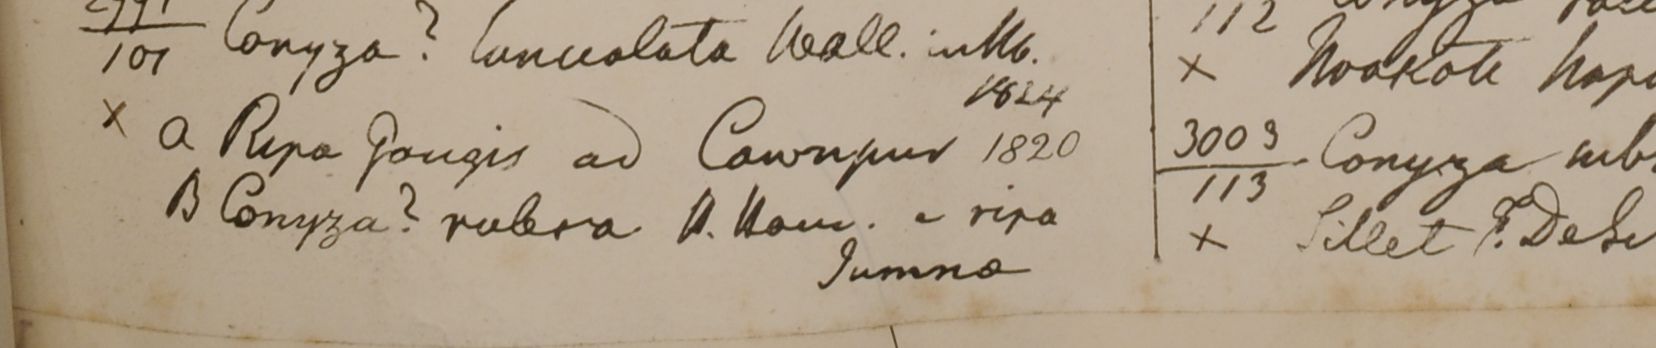 101 Conyza? lanceolata Wall. in Hb.
1824
× a Ripa Gangis ad Cawnpur 1820
B Conyza? rubra H. Ham. e ripa
Jumna
112 Conyza
× Noakote
3009
113 Conyza
× Sillet F. De